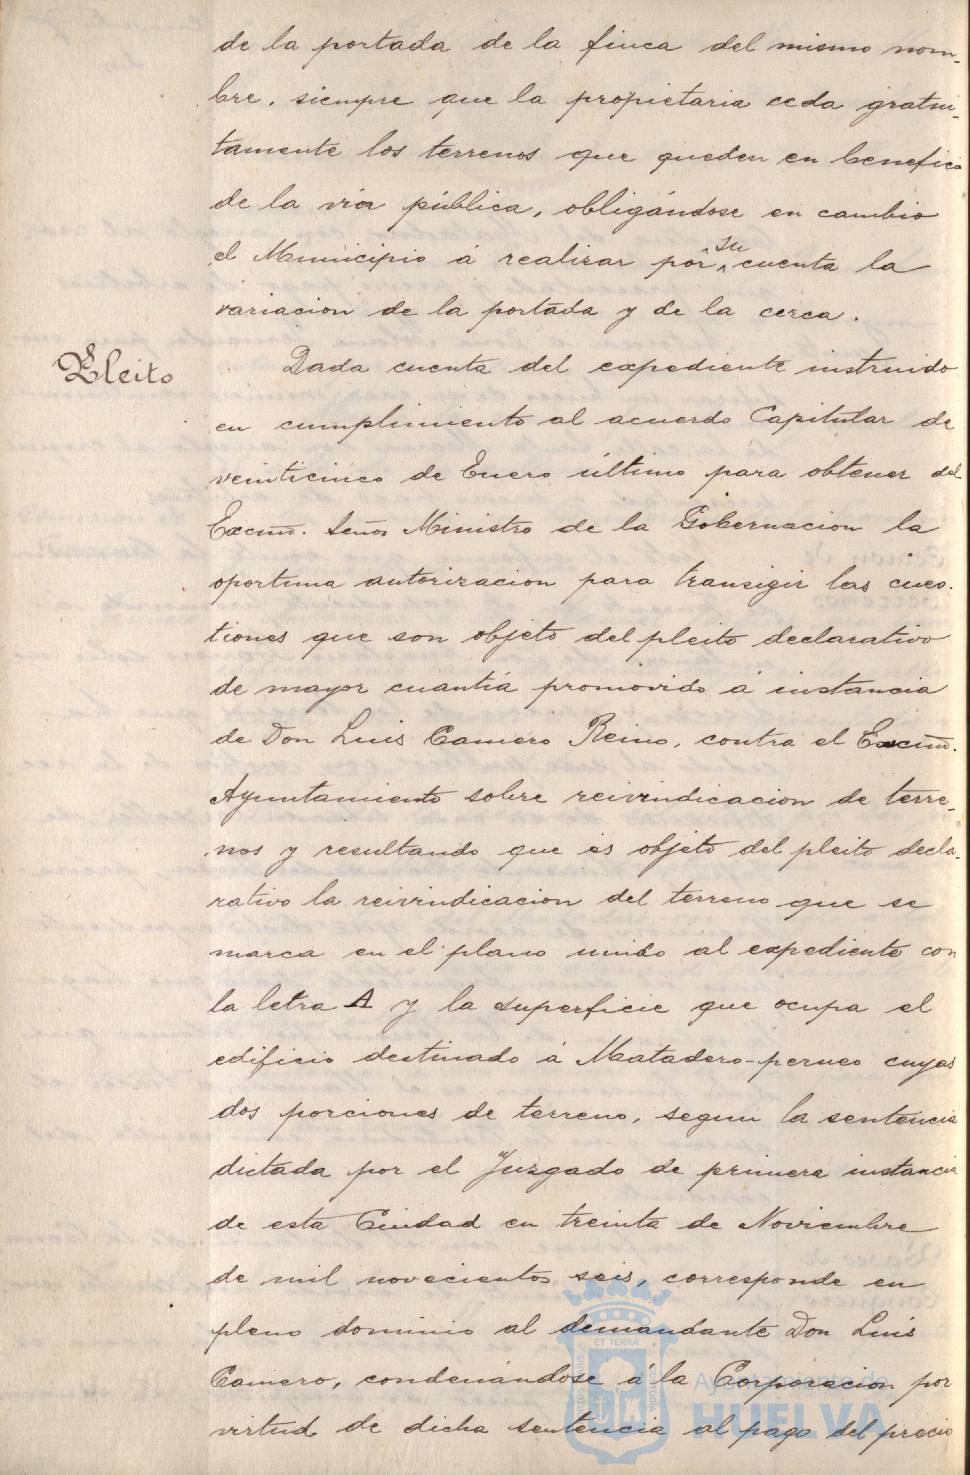 de la portada de la finca del mismo nom-
bre, siempre que la propietaria ceda gratui-
tamente los terrenos que queden en beneficio
de la vía pública, obligándose en cambio
el Municipio á realizar por su cuenta la
variacion de la portada y de la cerca.
Pleito
Dada cuenta del expediente instruido
en cumplimiento al acuerdo Capitular de
veinticinco de Enero último para obtener del
Excmo. Señor Ministro de la Gobernacion la
oportuna autorizacion para transigir las cues-
tiones que son objeto del pleito declarativo
de mayor cuantía promovido á instancia
de Don Luis Camero Reino, contra el Excmo.
Ayuntamiento sobre reivindicacion de terre-
nos y resultando que es objeto del pleito decla-
rativo la reivindicacion del terreno que se
marca en el plano unido al expediente con
la letra A y la superficie que ocupa el
edificio destinado á Matadero-perneo cuyas
dos porciones de terreno, segun la sentencia
dictada por el Juzgado de primera instancia
de esta Ciudad en treinta de Noviembre
de mil novecientos seis, corresponde en
pleno dominio al demandante Don Luis
Camero, condenándose á la Corporacion por
virtud de dicha sentencia al pago del precio
Ayuntamiento de
HUELVA